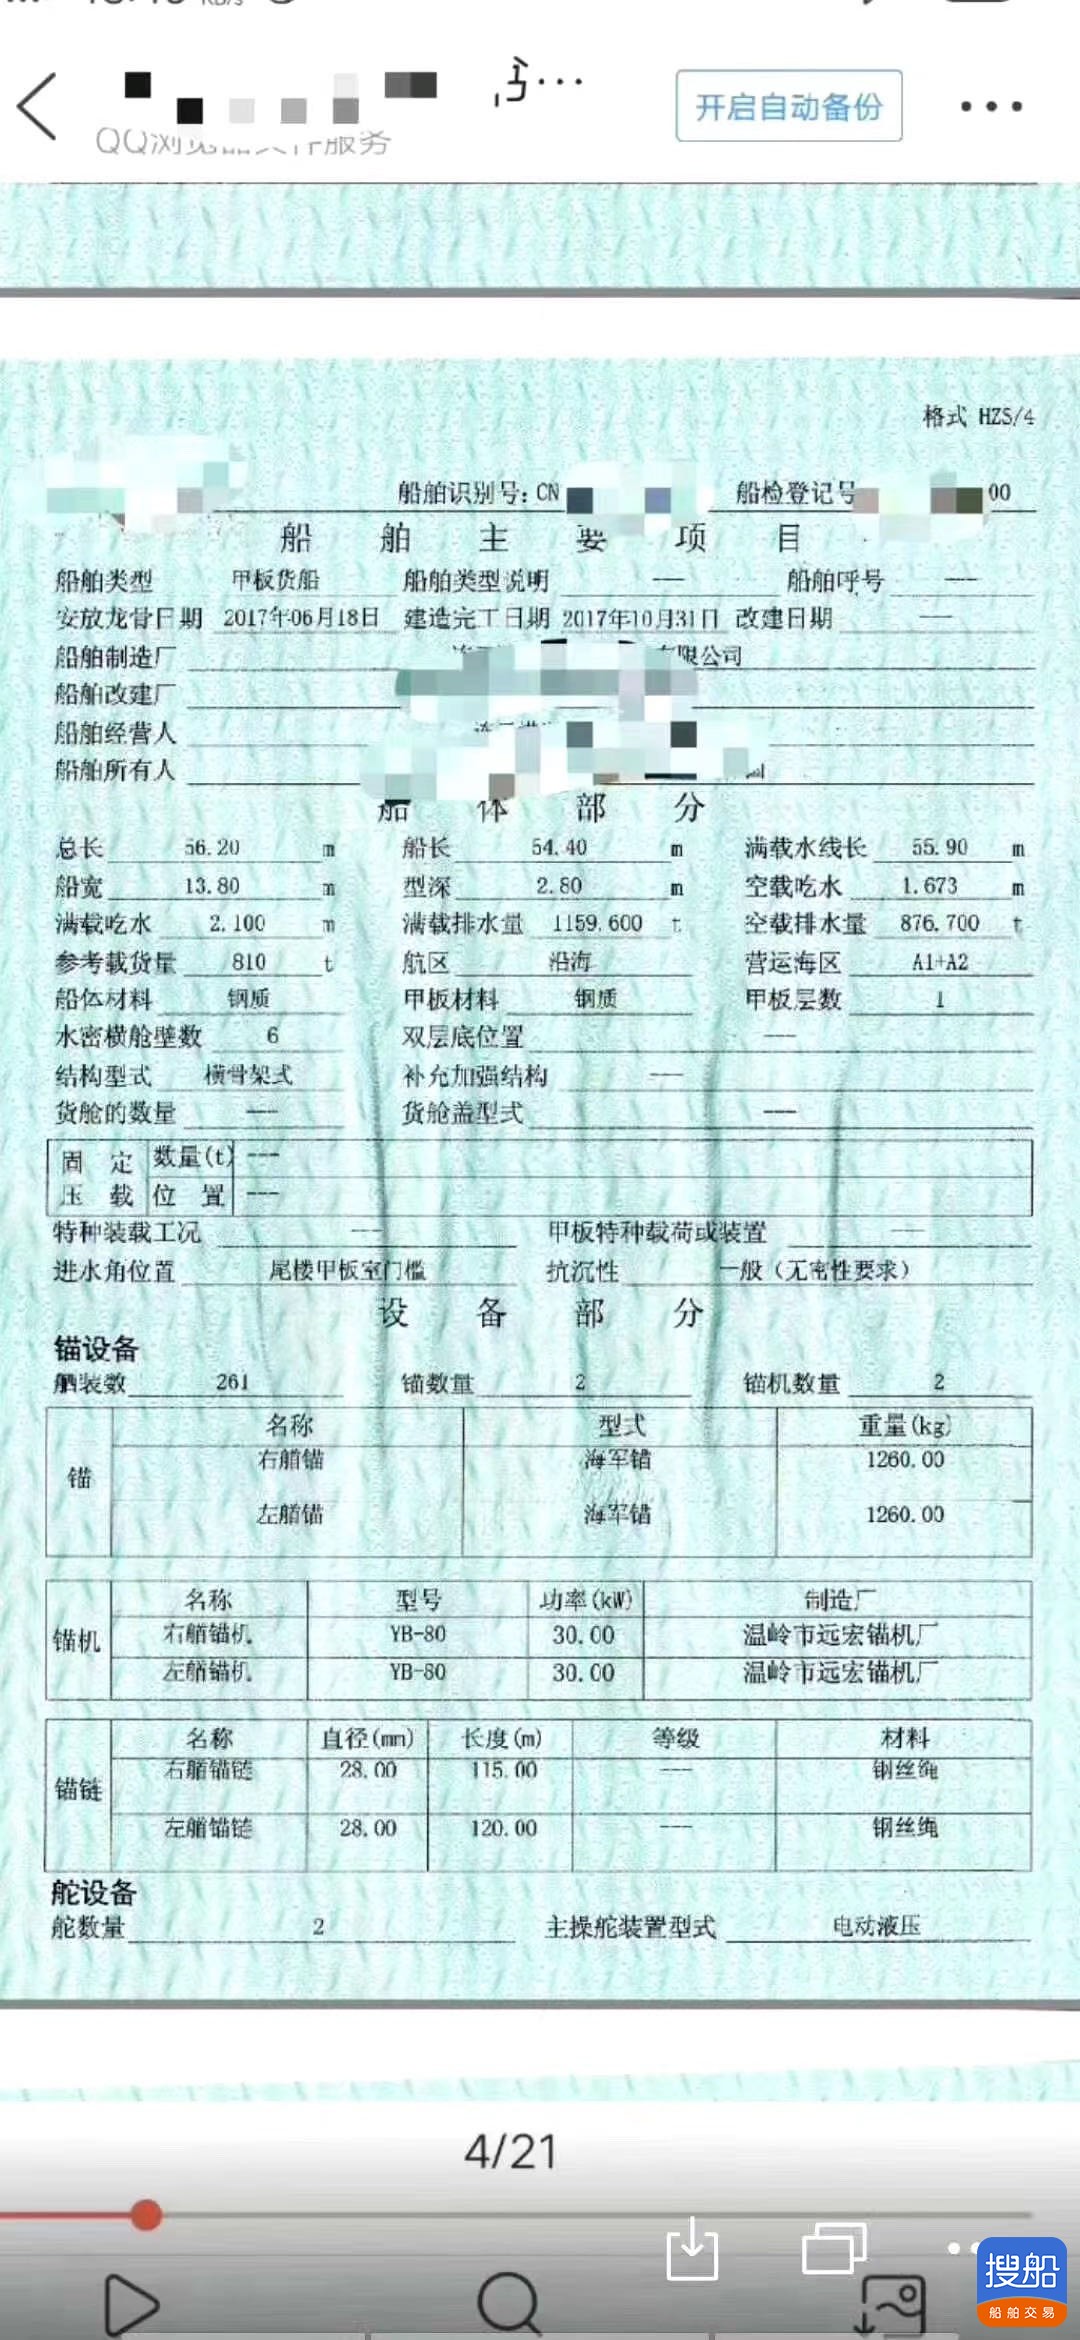 开启自动备份
格式 HZS/4
船舶识别号:CN 船检登记号 00
船舶主要项目
船舶类型 甲板货船 船舶类型说明 --- 船舶呼号 ---
安放龙骨日期 2017年06月18日 建造完工日期 2017年10月31日 改建日期 ---
船舶制造厂 有限公司
船舶改建厂
船舶经营人
船舶所有人
船体部分
总长 56.20 m 船长 54.40 m 满载水线长 55.90 m
船宽 13.80 m 型深 2.80 m 空载吃水 1.673 m
满载吃水 2.100 m 满载排水量 1159.600 t 空载排水量 876.700 t
参考载货量 810 t 航区 沿海 营运海区 A1+A2
船体材料 钢质 甲板材料 钢质 甲板层数 1
水密横舱壁数 6 双层底位置 ---
结构型式 横骨架式 补充加强结构 ---
货舱的数量 --- 货舱盖型式 ---
固定 数量(t) ---
压载 位置 ---
特种装载工况 --- 甲板特种载荷或装置 ---
进水角位置 尾楼甲板室门槛 抗沉性 一般(无密性要求)
设备部分
锚设备
舾装数 261 锚数量 2 锚机数量 2
名称 型式 重量(kg)
锚
右艏锚 海军锚 1260.00
左艏锚 海军锚 1260.00
名称 型号 功率(kW) 制造厂
锚机
右艏锚机 YB-80 30.00 温岭市远宏锚机厂
左艏锚机 YB-80 30.00 温岭市远宏锚机厂
名称 直径(mm) 长度(m) 等级 材料
锚链
右艏锚链 28.00 115.00 --- 钢丝绳
左艏锚链 28.00 120.00 --- 钢丝绳
舵设备
舵数量 2 主操舵装置型式 电动液压
4/21
搜船
船舶交易